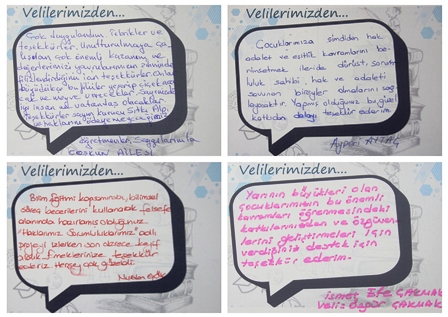 Velilerimizden...
Çok duygulandım tebrikler ve
teşekkürler unutulmamaya
çok önemli kazanım ve
değerlerimizi
teşekkürler
büyüdükçe bu
çak ve meyve verecekler. Sayenizde
iyi insan iyi vatandaş olacaklar
teşekkürler sayın kurucu
haklarını ödeyemeyeceğimiz
öğretmenler. Saygılarımla
COŞKUN AİLESİ
Velilerimizden...
Çocuklarımıza şimdiden hak
adalet ve eşitlik kavramlarını be-
nimsetmek ileride dürüst, sorum-
luluk sahibi, hak ve adaleti
savunan bireyler olmalarını sağ-
layacaktır. Yapmış olduğunuz bu güzel
katkıdan dolayı teşekkür ederim.
Velilerimizden...
Bilim eğitimi kapsamında, bilimsel
süreç becerilerini kullanarak felsefe
alanında hazırlamış olduğunuz
"Haklarımız Sorumluluklarımız" adlı
projeyi izlerken son derece keyif
aldık. Emeklerinize teşekkür
ederiz. Herşey çok güzeldi.
Velilerimizden...
Yarının büyükleri olan
çocuklarımızın bu önemli
kavramları öğrenmesindeki
katkılarınızdan ve özgüven-
lerini geliştirmeleri için
verdiğiniz destek için
teşekkür ederim.
İsmet Efe ÇAKMAK
Velisi Özgür ÇAKMAK